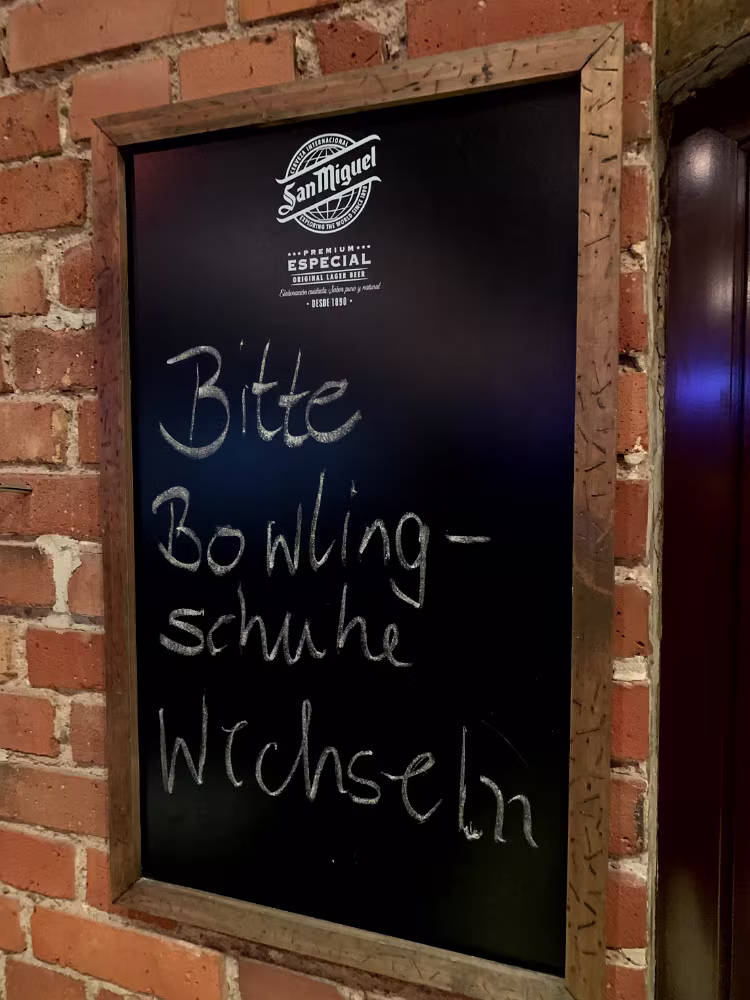 CERVEZA INTERNACIONAL
San Miguel
EXPLORING THE WORLD SINCE 1890
PREMIUM
ESPECIAL
ORIGINAL LAGER BEER
Elaboración cuidada. Sabor puro y natural
• DESDE 1890 •
Bitte
Bowling-
schuhe
Wechseln